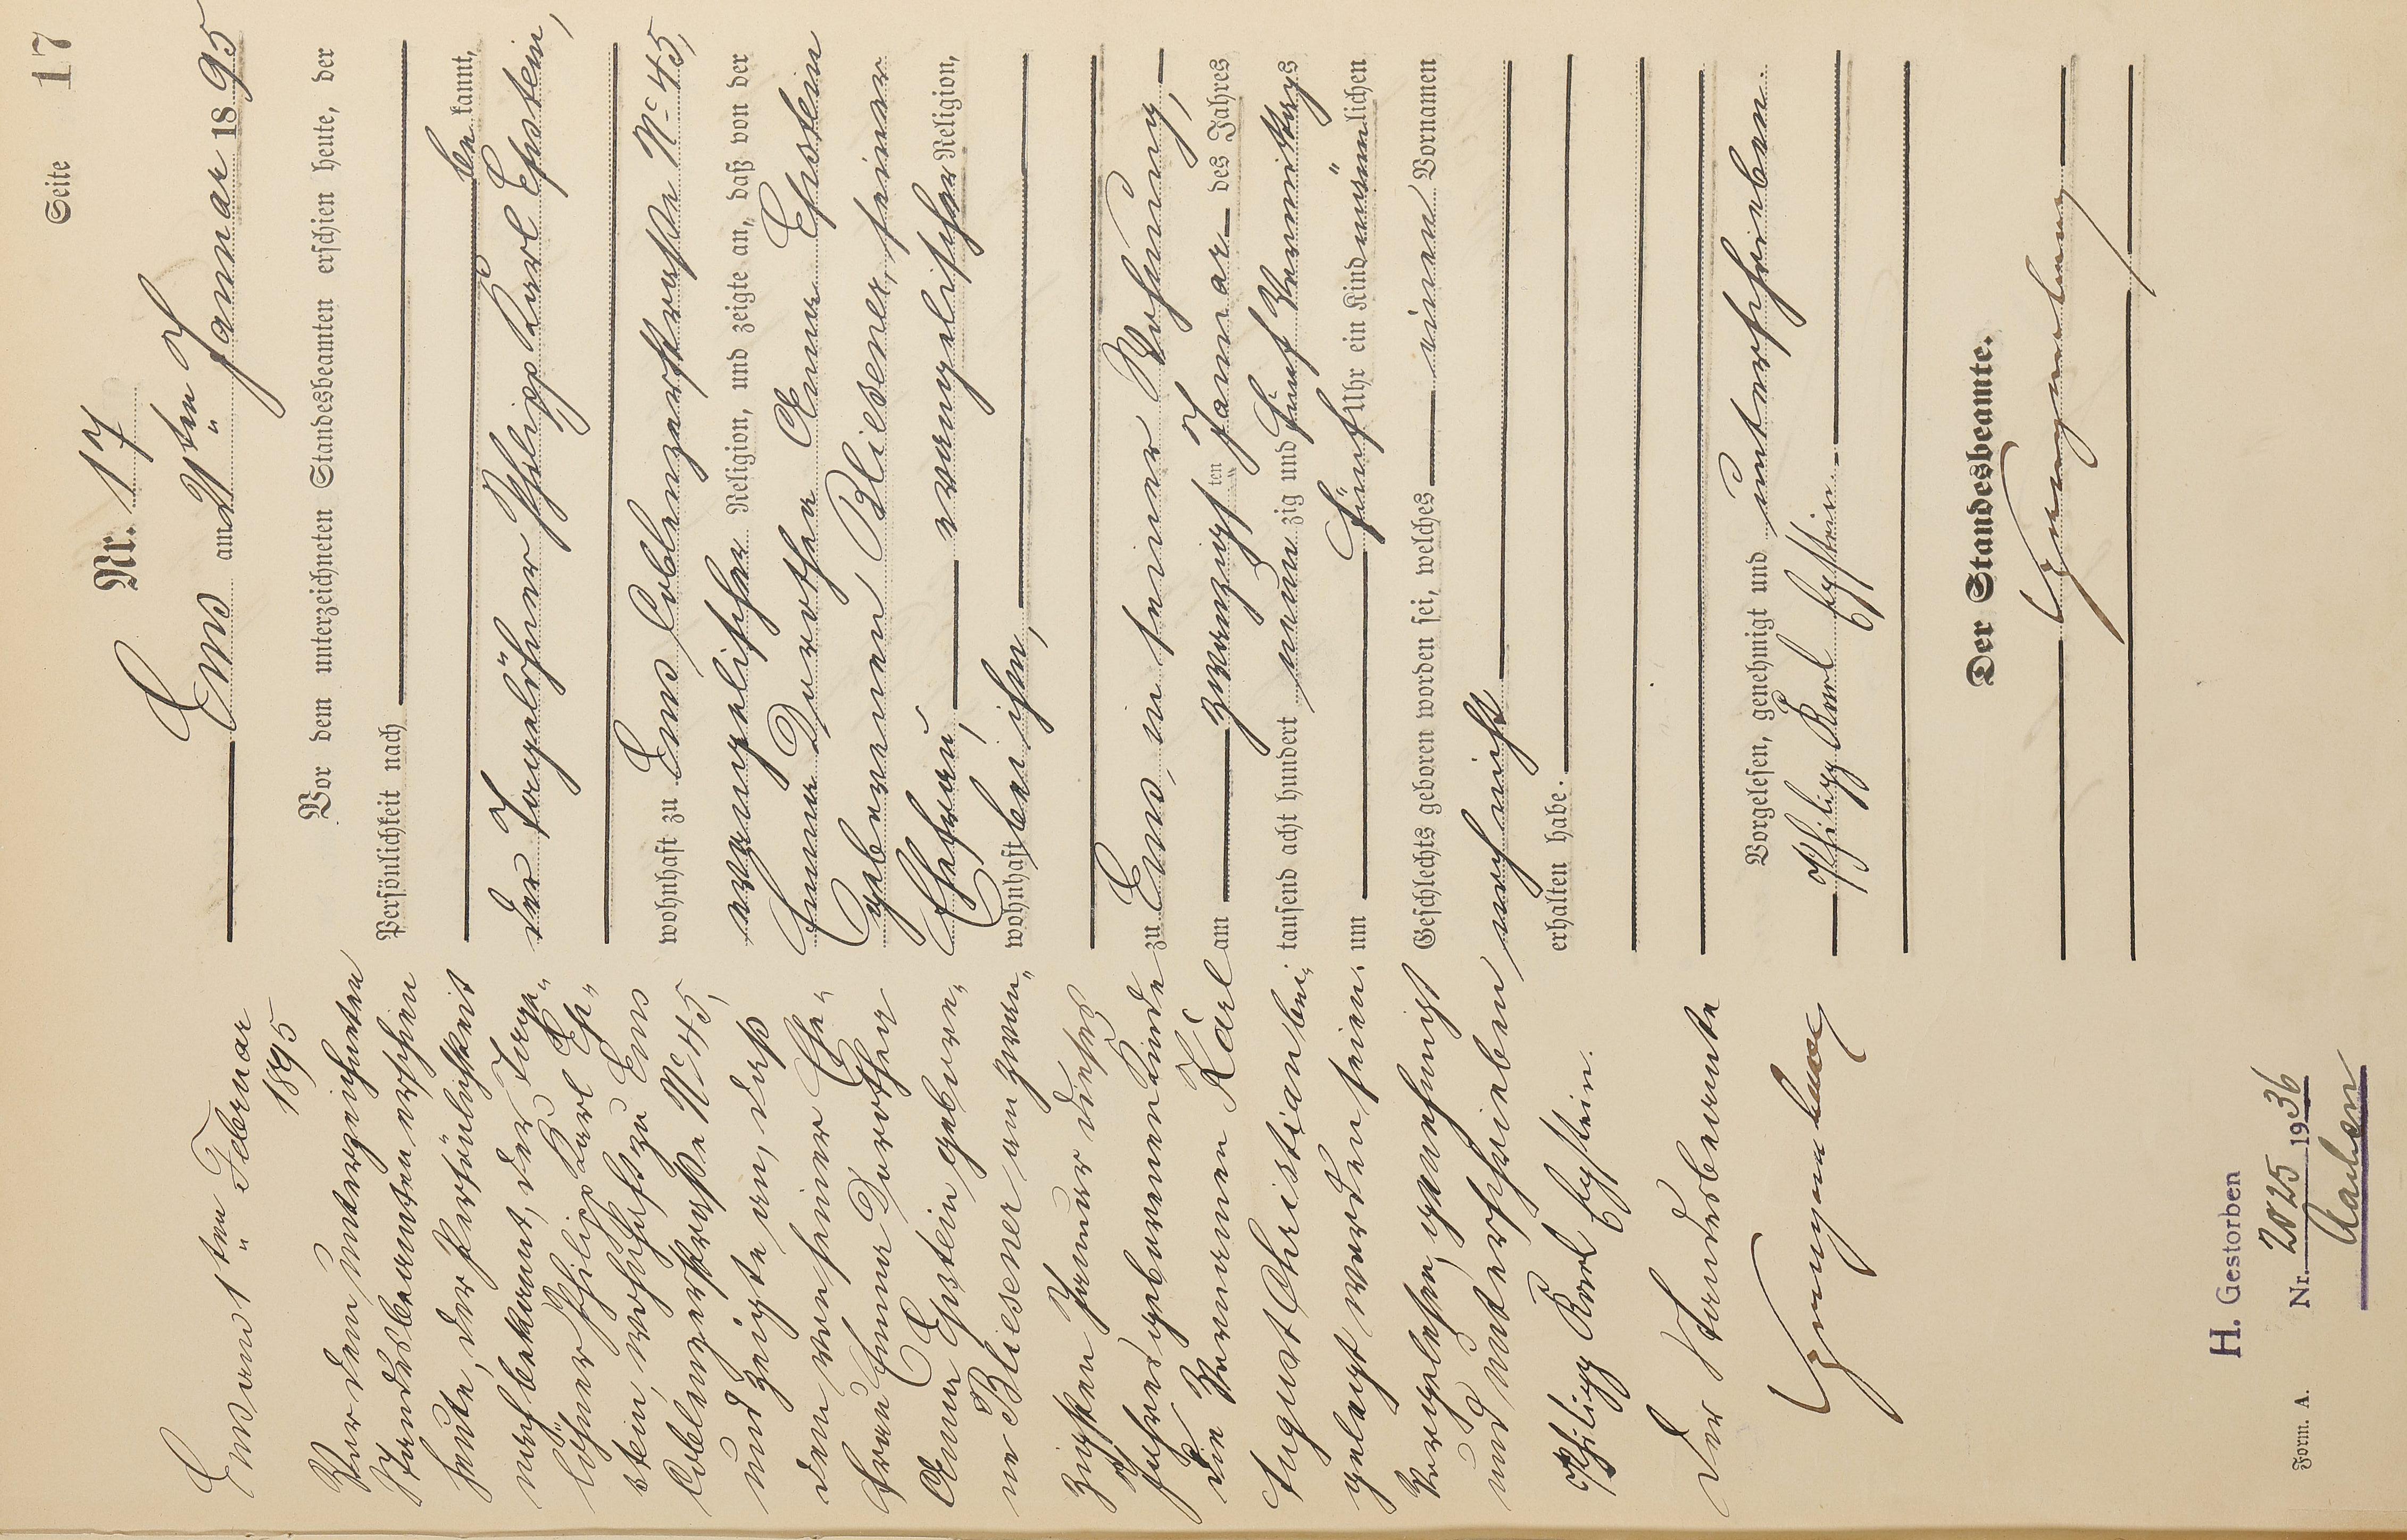 Seite 17
Nr. 17
Ems am 21ten Januar 1895
Vor dem unterzeichneten Standesbeamten erschien heute, der
Persönlichkeit nach
bekannt,
der Tagelöhner Philipp Karl Epstein,
wohnhaft zu Ems Coblenzerstraße Nc 45,
evangelischer Religion, und zeigte an, daß von der
Emma Dorothea Anna Epstein
geborenen Bliesener, seiner
Ehefrau, evangelischer Religion,
wohnhaft bei ihm,
zu Ems, in seiner Wohnung,
am zwanzigsten Januar des Jahres
tausend acht hundert neunzig und fünf Vormittags
um fünf Uhr ein Kind männlichen
Geschlechts geboren worden sei, welches einen Vornamen
noch nicht
erhalten habe.
Vorgelesen, genehmigt und unterschrieben.
Philipp Karl Epstein.
Der Standesbeamte.
Ems am 1ten Februar
1895
Vor dem Unterzeichneten
Standesbeamten erschien
heute, der Persönlichkeit
nach bekannt, der Tage-
löhner Philipp Karl Ep-
stein, wohnhaft zu Ems
Coblenzerstraße Nc 45,
und zeigte an, daß
dem von seiner Ehe-
frau Emma Dorothea
Anna Epstein gebore-
ne Bliesener am zwan-
zigsten Januar dieses
Jahres geborenen Kinde
die Vornamen Karl
August Christian bei-
gelegt worden seien.
Vorgelesen, genehmigt
und unterschrieben
Philipp Karl Epstein.
Der Standesbeamte
H. Gestorben
Nr. 2025 1936
Aachen
Form. A.